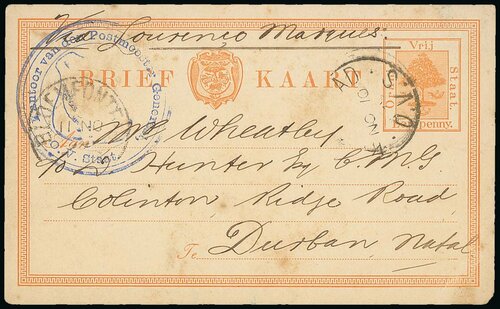 Via Lourenço Marques.
Kantoor van den Postmeester Generaal
O.V. Staat.
BLOEMFONTEIN
BRIEF KAART
Vrij
Staat.
penny.
O.V.S.
NO
Mr Wheatley
Hunter Esq C.M.G.
Colenton Ridge Road
To Durban, Natal